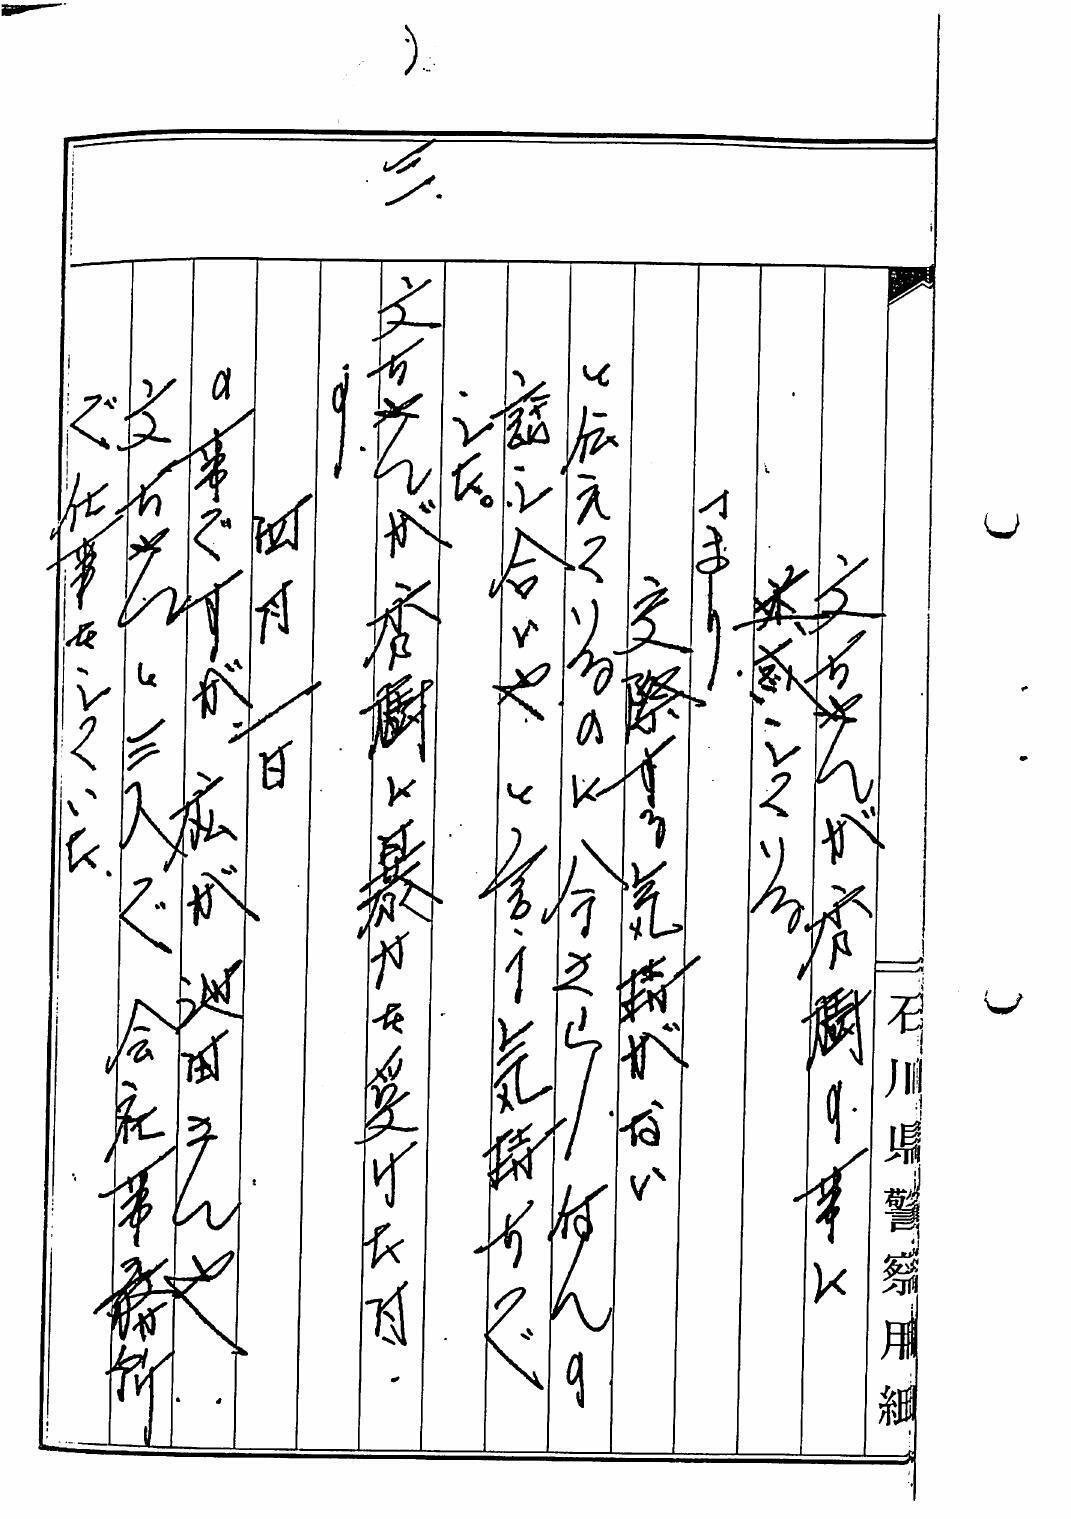 石川県警察用紙
文ちゃんが広樹の事に
迷惑している
つまり
交際する気持がない
と伝えているのに今さら何んの
話し合いや と言う気持ちで
した。
三.
文ちゃんが広樹に暴力を受けた日.
は.
四月 一日
の事ですが 私が 辺田さんや
文ちゃんと三人で 会社事務所
で仕事をしていた.